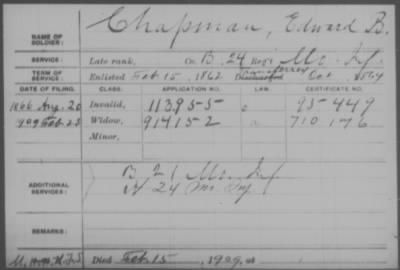 NAME OF SOLDIER: Chapman, Edward B.
SERVICE: Late rank, Co. B, 24 Reg't Me. Inf.
TERM OF SERVICE: Enlisted Feb 15, 1862 Oct
DATE OF FILING. CLASS. APPLICATION NO. LAW. CERTIFICATE NO.
1866 Aug. 20 Invalid, 113955 95449
1909 Feb 23 Widow, 914152 710176
Minor,
ADDITIONAL SERVICES: B 21 Me. Inf
24 Me. Inf
REMARKS:
Died Feb 15, 1909, at